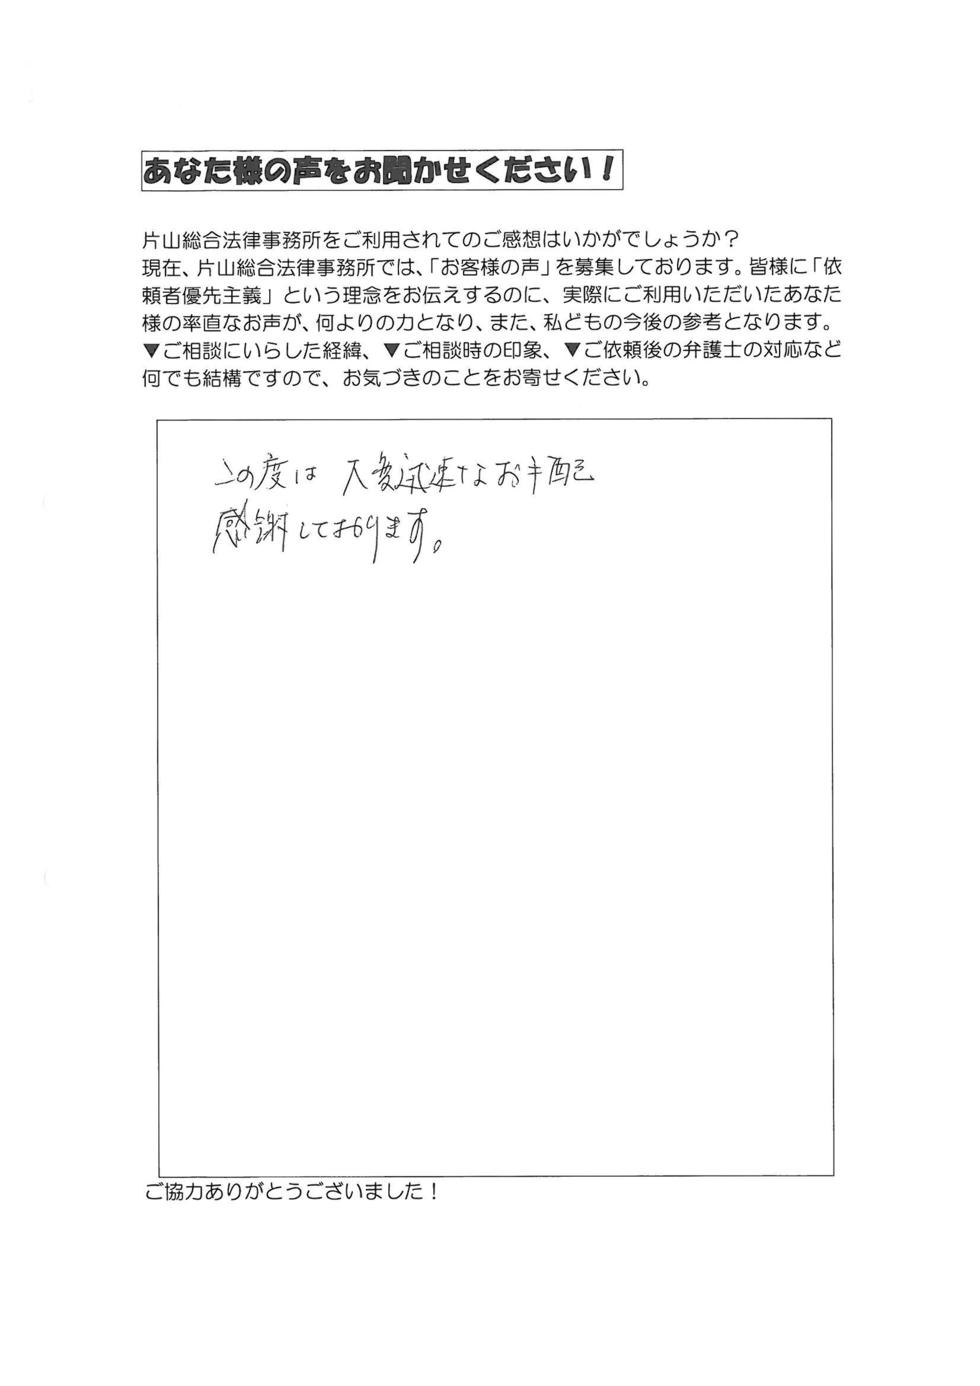 あなた様の声をお聞かせください！
片山総合法律事務所をご利用されてのご感想はいかがでしょうか？
現在、片山総合法律事務所では、「お客様の声」を募集しております。皆様に「依
頼者優先主義」という理念をお伝えするのに、実際にご利用いただいたあなた
様の率直なお声が、何よりの力となり、また、私どもの今後の参考となります。
▼ご相談にいらした経緯、▼ご相談時の印象、▼ご依頼後の弁護士の対応など
何でも結構ですので、お気づきのことをお寄せください。
この度は 大変迅速なお手配
感謝しております。
ご協力ありがとうございました！